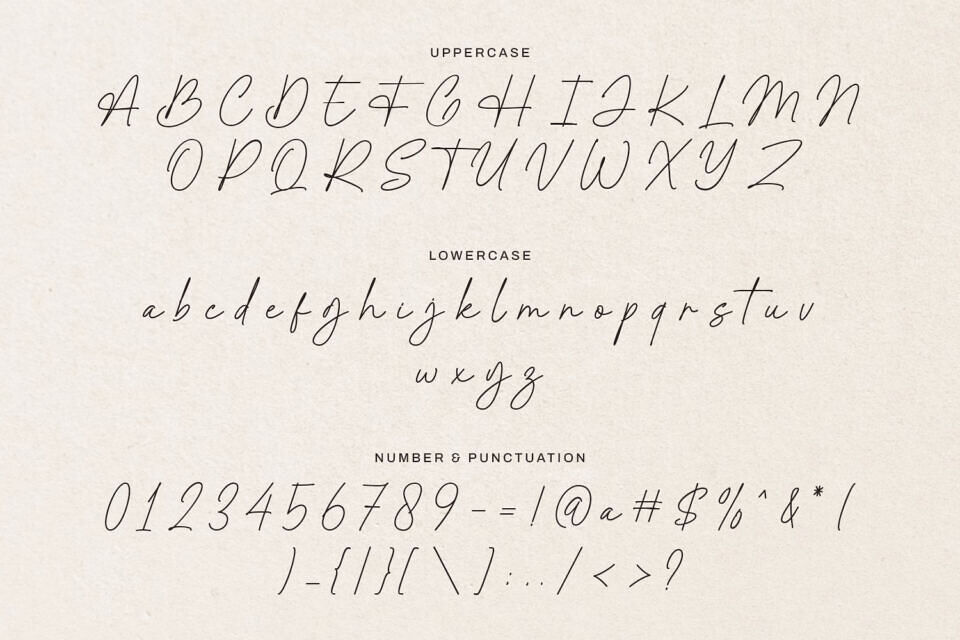 UPPERCASE
A B C D E F G H I J K L M N
O P Q R S T U V W X Y Z
LOWERCASE
a b c d e f g h i j k l m n o p q r s t u v
w x y z
NUMBER & PUNCTUATION
0 1 2 3 4 5 6 7 8 9 - = ! @ a # $ % ^ & * (
) _ { | } [ \ ] : . . / < > ?